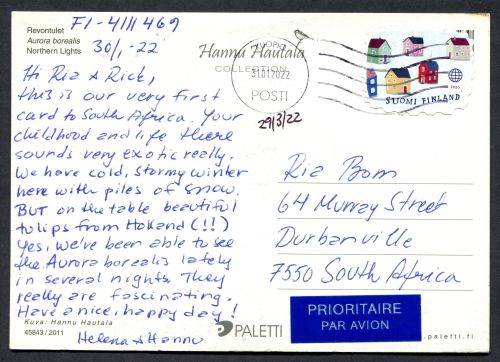 FI-4111469
Revontulet
Aurora borealis
Northern Lights
30/1-22
Hi Ria & Rick,
this is our very first
card to South Africa. Your
childhood and life there
sounds very exotic really.
We have cold, stormy winter
here with piles of snow.
BUT on the table beautiful
tulips from Holland (!!)
Yes, we've been able to see
the Aurora borealis lately
in several nights. They
really are fascinating.
Have a nice, happy day!
Kuva: Hannu Hautala
45843/2011
Helena & Hannu
Hannu Hautala
COLLECTION
KUOPIO
31.01.2022
POSTI
29/3/22
SUOMI FINLAND
2020
Ria Bom
64 Murray Street
Durbanville
7550 South Africa
PRIORITAIRE
PAR AVION
PALETTI
paletti.fi